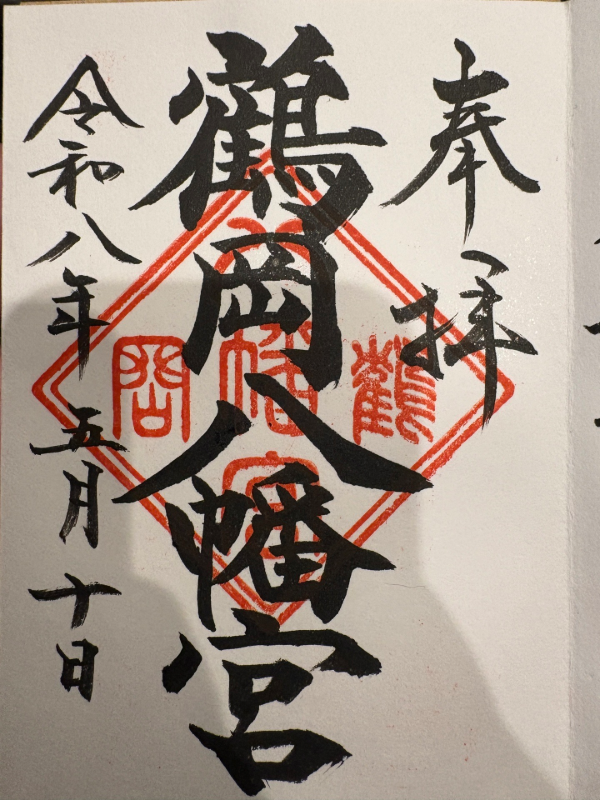 奉拝
鶴岡八幡宮
令和八年五月十日
鶴
八幡宮
岡